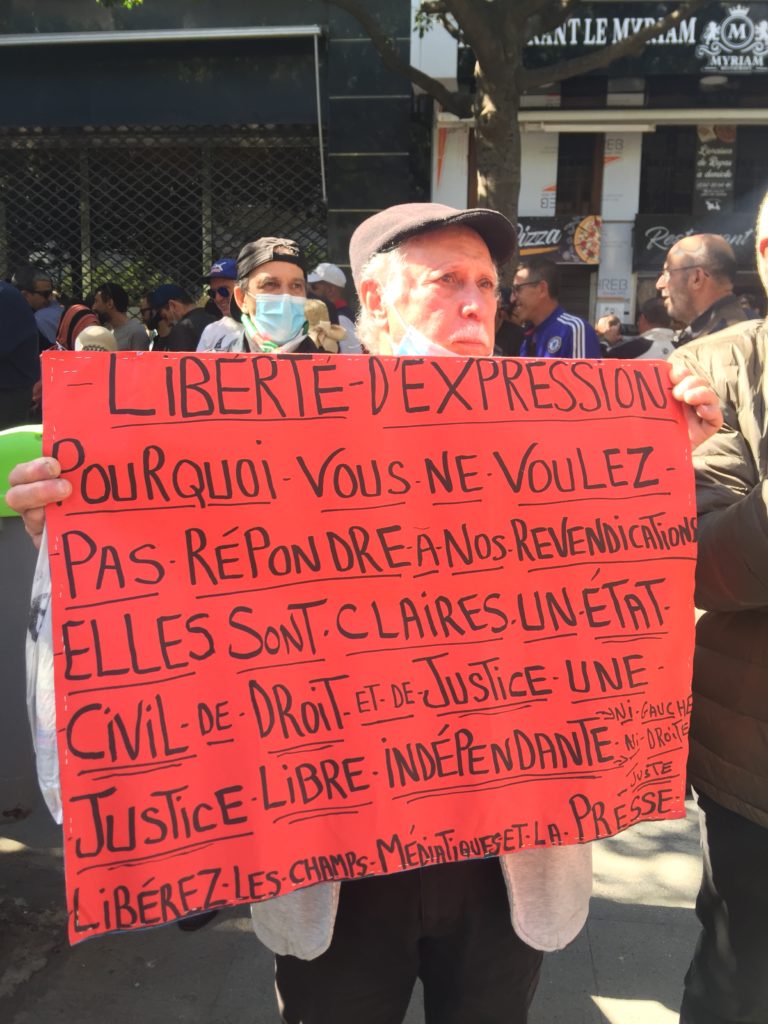 RANT LE MYRIAM
M
MYRIAM
Livraison
de
Repas
à domicile
izza
Restaurant
- LIBERTÉ - D'EXPRESSION
POURQUOI - VOUS - NE - VOULEZ -
PAS - RÉPONDRE - À - NOS - REVENDICATIONS
ELLES SONT - CLAIRES - UN - ÉTAT -
CIVIL - DE - DROIT - ET - DE - JUSTICE - UNE -
JUSTICE - LIBRE - INDÉPENDANTE -
NI - GAUCHE
NI - DROITE
JUSTE
LIBÉREZ - LES - CHAMPS - MÉDIATIQUES ET - LA - PRÉSSE